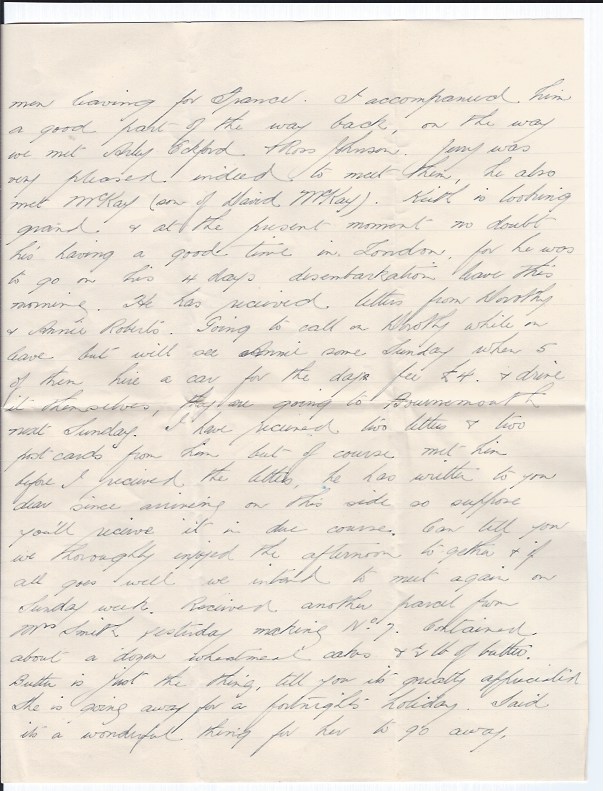 men leaving for France. I accompanied him
a good part of the way back, on the way
we met Arty Oxford & Ross Johnson. Jerry was
very pleased indeed to meet them, he also
met McKay (son of David McKay). Keith is looking
grand. & at the present moment no doubt
his having a good time in London, for he was
to go on his 4 days disembarkation leave this
morning. He has received letters from Dorothy
& Annie Roberts. Going to call on Dorothy while on
leave but will see Annie some Sunday when 5
of them hire a car for the day fee £4. & drive
it themselves, they are going to Bournemouth
next Sunday. I have received two letters & two
post cards from him but of course met him
before I received the letters, he has written to you
dear since arriving on this side so suppose
you'll receive it in due course. Can tell you
we thoroughly enjoyed the afternoon to-gether & if
all goes well we intend to meet again on
Sunday week. Received another parcel from
Mrs Smith yesterday making No 7. Contained
about a dozen wheatmeal cakes & ½ lb of butter.
Butter is just the thing, tell you its greatly appreciated
She is going away for a fortnights holiday. Said
it's a wonderful thing for her to go away,